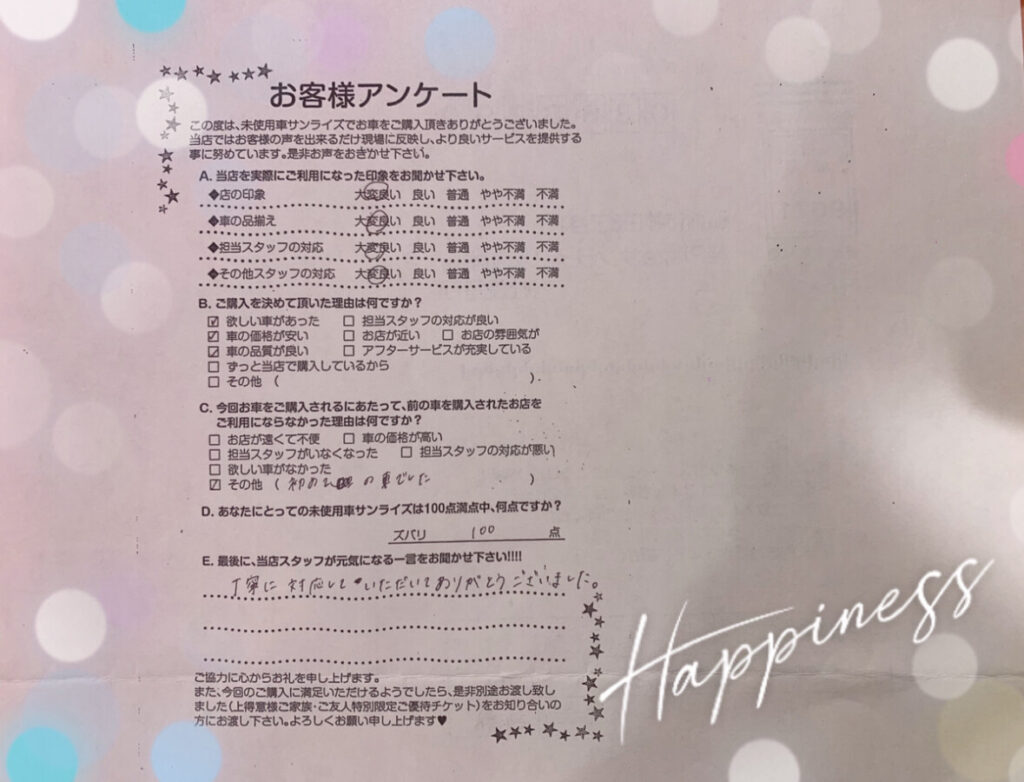 お客様アンケート
この度は、未使用車サンライズでお車をご購入頂きありがとうございました。
当店ではお客様の声を出来るだけ現場に反映し、より良いサービスを提供する
事に努めています。是非お声をおきかせ下さい。
A. 当店を実際にご利用になった印象をお聞かせ下さい。
◆店の印象 大変良い 良い 普通 やや不満 不満
◆車の品揃え 大変良い 良い 普通 やや不満 不満
◆担当スタッフの対応 大変良い 良い 普通 やや不満 不満
◆その他スタッフの対応 大変良い 良い 普通 やや不満 不満
B. ご購入を決めて頂いた理由は何ですか？
☑ 欲しい車があった □ 担当スタッフの対応が良い
☑ 車の価格が安い □ お店が近い □ お店の雰囲気が
☑ 車の品質が良い □ アフターサービスが充実している
□ ずっと当店で購入しているから
□ その他 ( ).
C. 今回お車をご購入されるにあたって、前の車を購入されたお店を
ご利用にならなかった理由は何ですか？
□ お店が遠くて不便 □ 車の価格が高い
□ 担当スタッフがいなくなった □ 担当スタッフの対応が悪い
□ 欲しい車がなかった
☑ その他 ( 初めての車でした )
D. あなたにとっての未使用車サンライズは100点満点中、何点ですか？
ズバリ 100 点
E. 最後に、当店スタッフが元気になる一言をお聞かせ下さい!!!!
丁寧に対応していただいてありがとうございました。
ご協力に心からお礼を申し上げます。
また、今回のご購入に満足いただけるようでしたら、是非別途お渡し致し
ました(上得意様ご家族・ご友人特別限定ご優待チケット)をお知り合いの
方にお渡し下さい。よろしくお願い申し上げます♥
Happiness